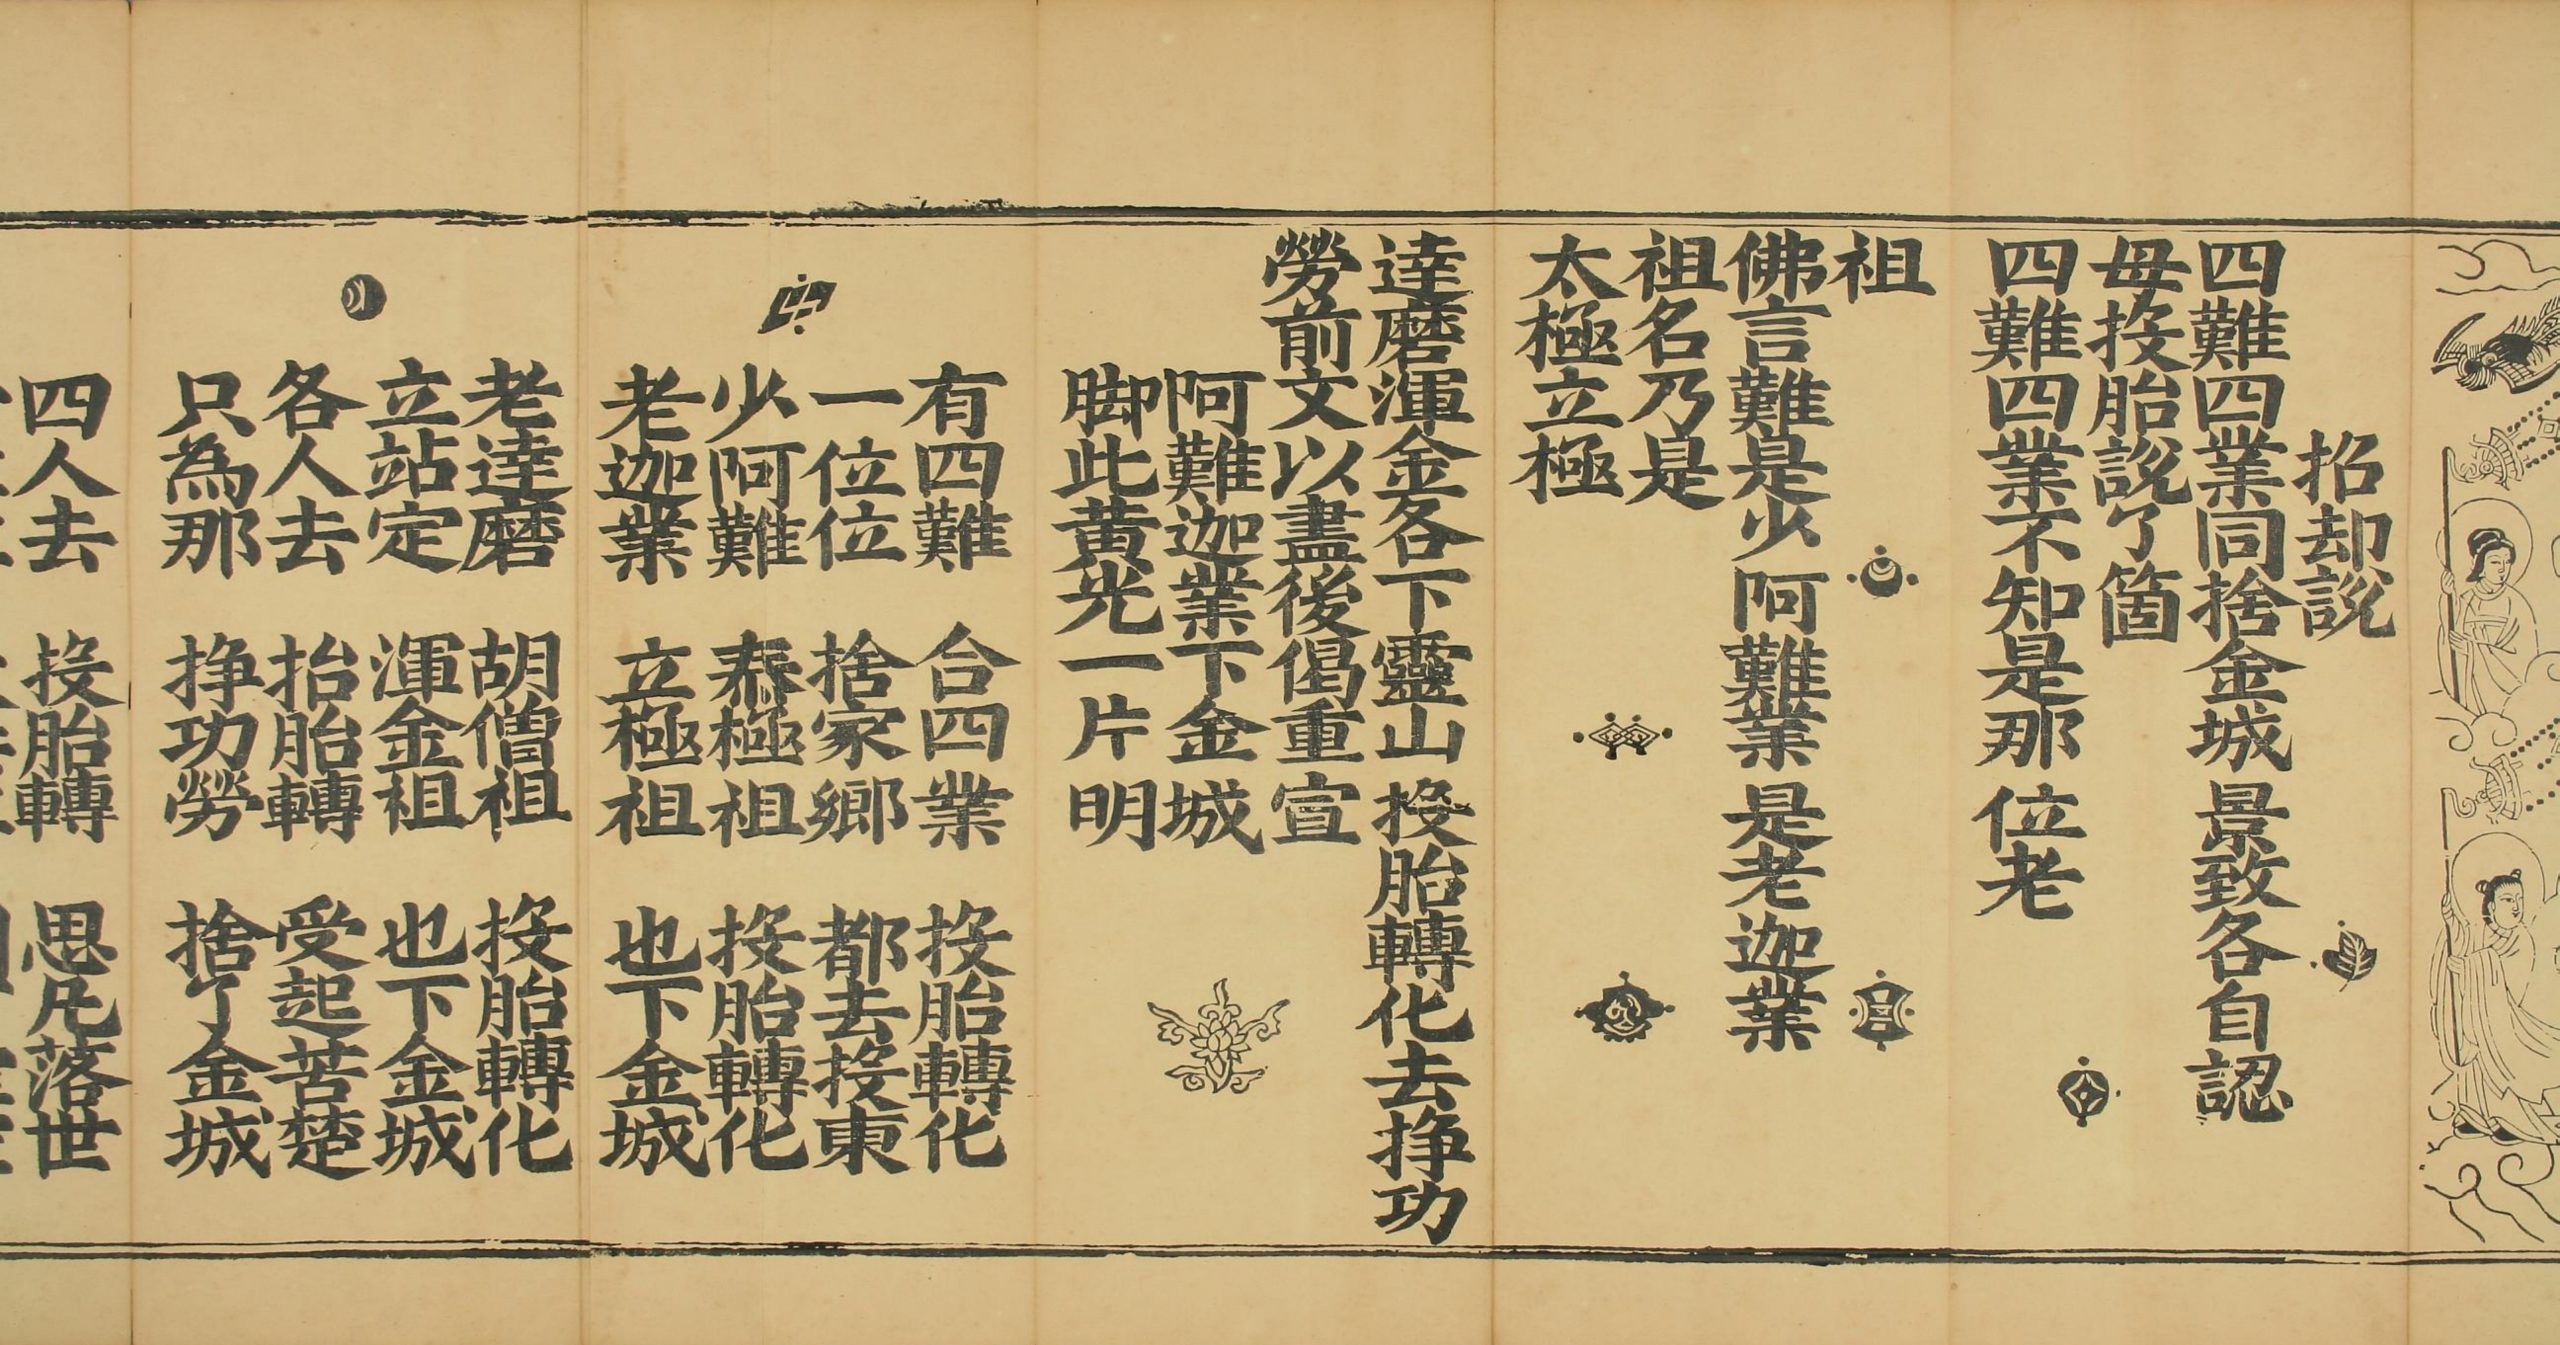 招却説
四難四業同捨金城景致各自認
母投胎說了箇
四難四業不知是那位老
祖
佛言難是少阿難業是老迦業
祖名乃是
太極立極
達磨渾金各下靈山投胎轉化去挣功
勞前文以盡後偈重宣
阿難迦業下金城
脚此黃光一片明
有四難 合四業 投胎轉化
一位位 捨家鄉 都去投東
少阿難 泰極祖 投胎轉化
老迦業 立極祖 也下金城
老達磨 胡僧祖 投胎轉化
立站定 渾金祖 也下金城
各人去 抬胎轉 受起苦楚
只為那 挣功勞 捨了金城
四人去 投胎轉 思凡落世